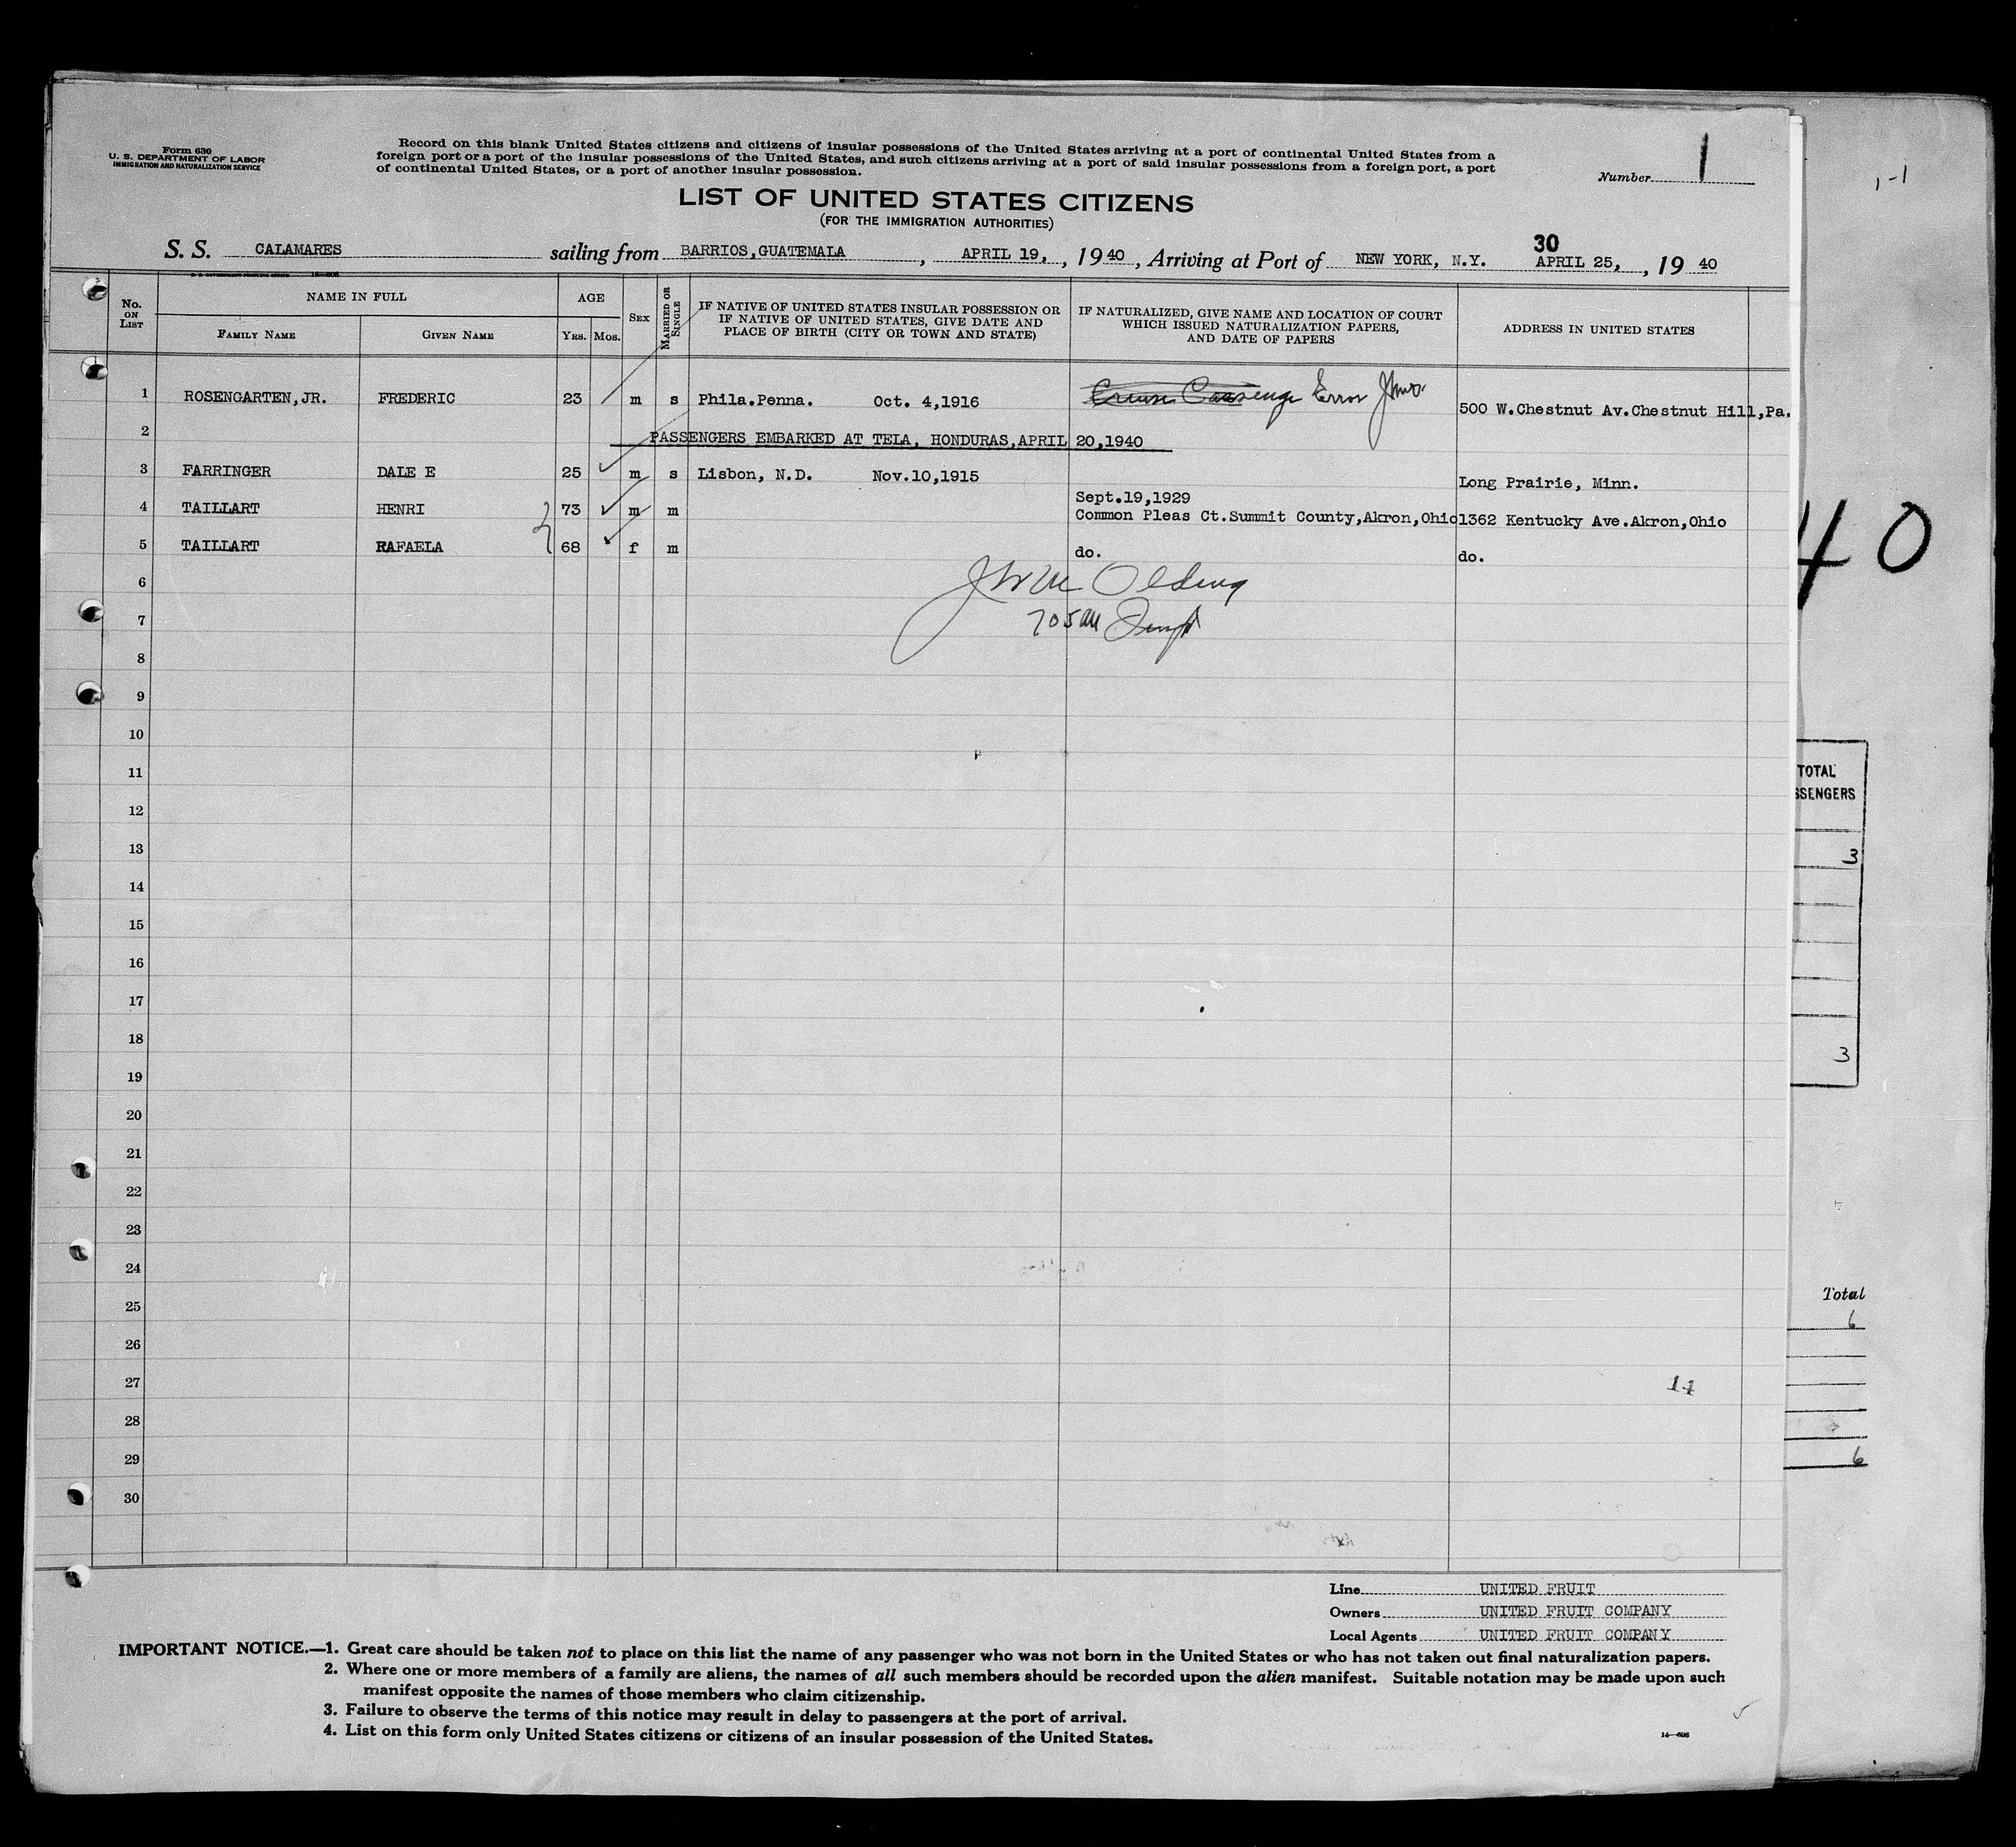 Form 630
U. S. DEPARTMENT OF LABOR
IMMIGRATION AND NATURALIZATION SERVICE
Record on this blank United States citizens and citizens of insular possessions of the United States arriving at a port of continental United States from a
foreign port or a port of the insular possessions of the United States, and such citizens arriving at a port of said insular possessions from a foreign port, a port
of continental United States, or a port of another insular possession.
Number 1
1-1
LIST OF UNITED STATES CITIZENS
(FOR THE IMMIGRATION AUTHORITIES)
30
S. S. CALAMARES sailing from BARRIOS,GUATEMALA, APRIL 19, , 1940, Arriving at Port of NEW YORK, N.Y. APRIL 25, , 1940
No. ON LIST
NAME IN FULL
FAMILY NAME
GIVEN NAME
AGE
YRS. MOS.
SEX
MARRIED OR SINGLE
IF NATIVE OF UNITED STATES INSULAR POSSESSION OR
IF NATIVE OF UNITED STATES, GIVE DATE AND
PLACE OF BIRTH (CITY OR TOWN AND STATE)
IF NATURALIZED, GIVE NAME AND LOCATION OF COURT
WHICH ISSUED NATURALIZATION PAPERS,
AND DATE OF PAPERS
ADDRESS IN UNITED STATES
1 ROSENGARTEN,JR. FREDERIC 23 m s Phila.Penna. Oct. 4,1916 Error 500 W.Chestnut Av.Chestnut Hill,Pa.
2 PASSENGERS EMBARKED AT TELA, HONDURAS,APRIL 20,1940
3 FARRINGER DALE E 25 m s Lisbon, N.D. Nov.10,1915 Long Prairie, Minn.
Sept.19,1929
4 TAILLART HENRI 73 m m Common Pleas Ct.Summit County,Akron,Ohio 1362 Kentucky Ave.Akron,Ohio
5 TAILLART RAFAELA 68 f m do. do.
40
6
7
8
9
10
11
12
13
14
15
16
17
18
19
20
21
22
23
24
25
26
27
28
29
30
14
TOTAL
SSENGERS
3
3
Total
6
6
Line UNITED FRUIT
Owners UNITED FRUIT COMPANY
Local Agents UNITED FRUIT COMPANY
IMPORTANT NOTICE.—1. Great care should be taken not to place on this list the name of any passenger who was not born in the United States or who has not taken out final naturalization papers.
2. Where one or more members of a family are aliens, the names of all such members should be recorded upon the alien manifest. Suitable notation may be made upon such
manifest opposite the names of those members who claim citizenship.
3. Failure to observe the terms of this notice may result in delay to passengers at the port of arrival.
4. List on this form only United States citizens or citizens of an insular possession of the United States.
14—608